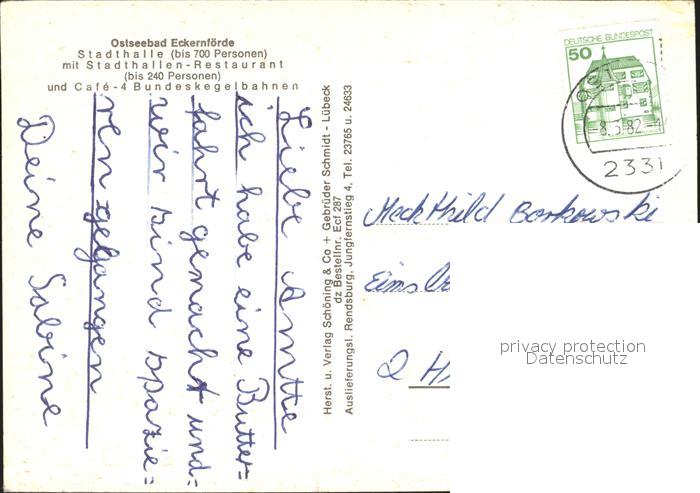 Ostseebad Eckernförde
Stadthalle (bis 700 Personen)
mit Stadthallen-Restaurant
(bis 240 Personen)
und Café-4 Bundeskegelbahnen
Liebe Anntte
ich habe eine Butter-
fahrt gemacht und
wir sind spazie=
ren gegangen
Deine Sabine
Herst. u. Verlag Schöning & Co + Gebrüder Schmidt - Lübeck
dz Bestellnr. Ecf 287
Auslieferungsl. Rendsburg, Jungfernstieg 4, Tel. 23765 u. 24633
DEUTSCHE BUNDESPOST
50
-8.5.82
2331
Meckthild Borkowski
Eims
2 H
privacy protection
Datenschutz